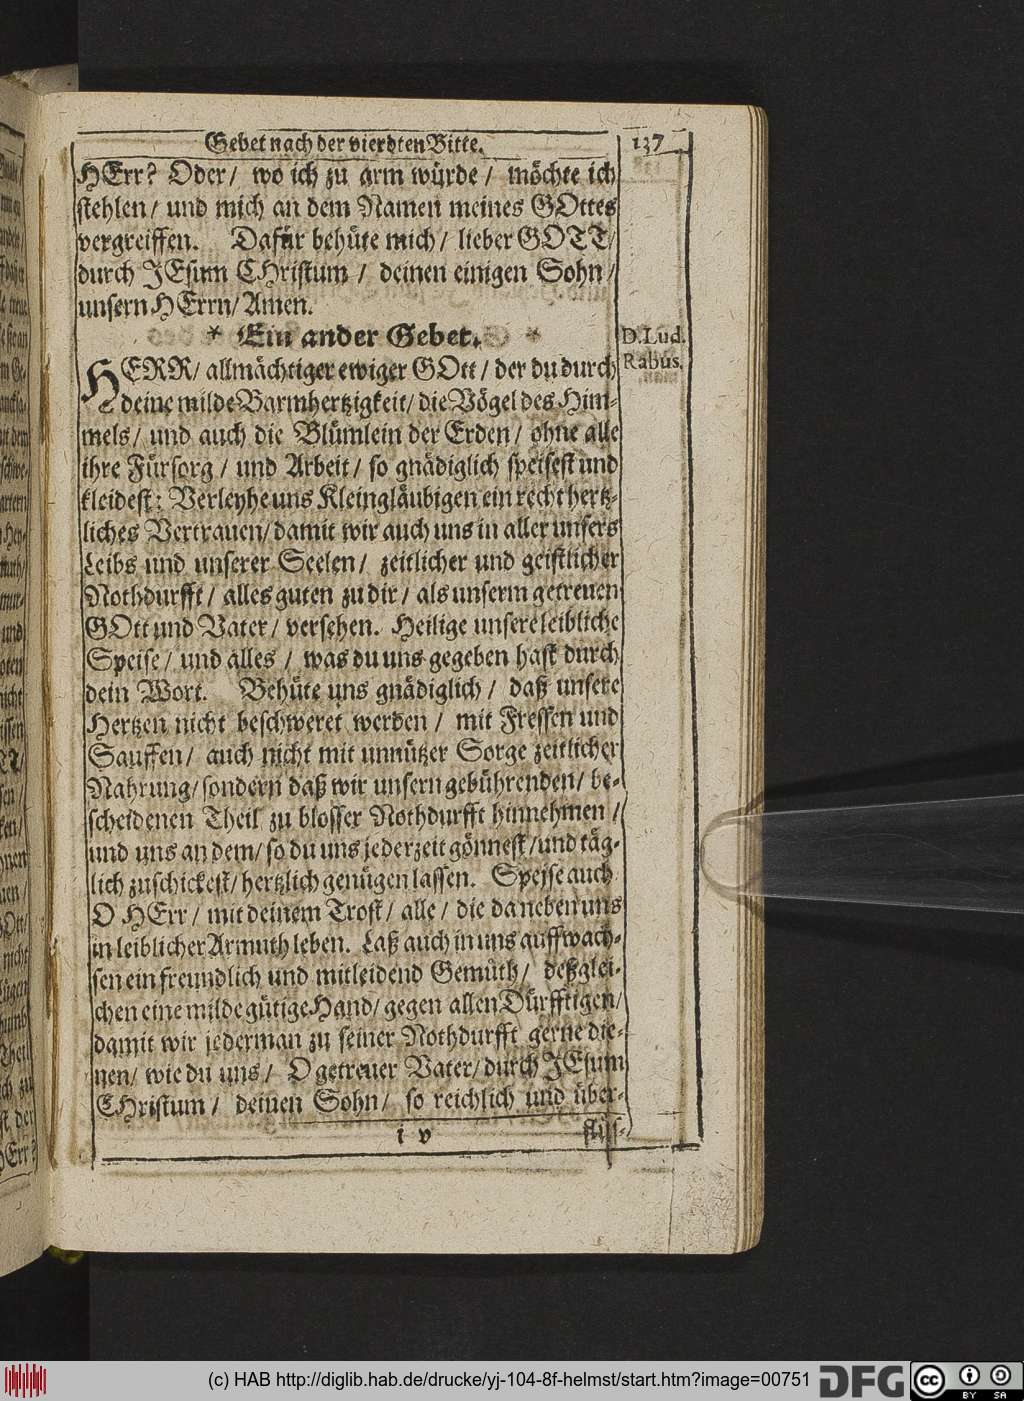 Gebet nach der vierdten Bitte. 137
HErr? Oder/ wo ich zu arm würde/ möchte ich
stehlen/ und mich an dem Namen meines GOttes
vergreiffen. Dafür behüte mich/ lieber GOTT/
durch JEsum CHristum/ deinen einigen Sohn/
unsern HErrn/ Amen.
* Ein ander Gebet. *
D. Lud.
Rabus.
HERR/ allmächtiger ewiger GOtt/ der du durch
deine milde Barmhertzigkeit/ die Vögel des Him-
mels/ und auch die Blümlein der Erden/ ohne alle
ihre Fürsorg/ und Arbeit/ so gnädiglich speisest und
kleidest: Verleyhe uns Kleingläubigen ein recht hertz-
liches Vertrauen/ damit wir auch uns in aller unsers
Leibs und unserer Seelen/ zeitlicher und geistlicher
Nothdurfft/ alles guten zu dir/ als unserm getreuen
GOtt und Vater/ versehen. Heilige unsere leibliche
Speise/ und alles/ was du uns gegeben hast durch
dein Wort. Behüte uns gnädiglich/ daß unsere
Hertzen nicht beschweret werden/ mit Fressen und
Sauffen/ auch nicht mit unnützer Sorge zeitlicher
Nahrung/ sondern daß wir unsern gebührenden/ be-
scheidenen Theil zu blosser Nothdurfft hinnehmen/
und uns an dem/ so du uns jederzeit gönnest/ und täg-
lich zuschickest/ hertzlich genügen lassen. Speise auch
O HErr/ mit deinem Trost/ alle/ die da neben uns
in leiblicher Armuth leben. Laß auch in uns auffwach-
sen ein freundlich und mitleidend Gemüth/ deßglei-
chen eine milde gütige Hand/ gegen allen Dürfftigen/
damit wir jederman zu seiner Nothdurfft gerne die-
nen/ wie du uns/ O getreuer Vater/ durch JEsum
CHristum/ deinen Sohn/ so reichlich und über-
i v flüs-
(c) HAB http://diglib.hab.de/drucke/yj-104-8f-helmst/start.htm?image=00751
DFG
cc
BY SA